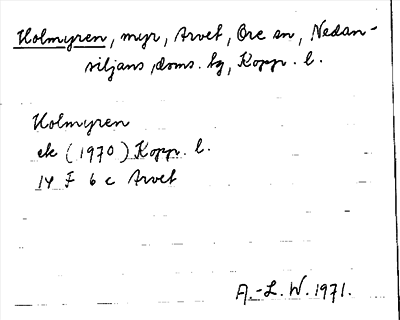 Holmyren, myr, Arvet, Ore sn, Nedan-
siljans doms. hg, Kopp. l.
Holmyren
ek (1970) Kopp. l.
14 F 6 c Arvet
A.-L. W. 1971.